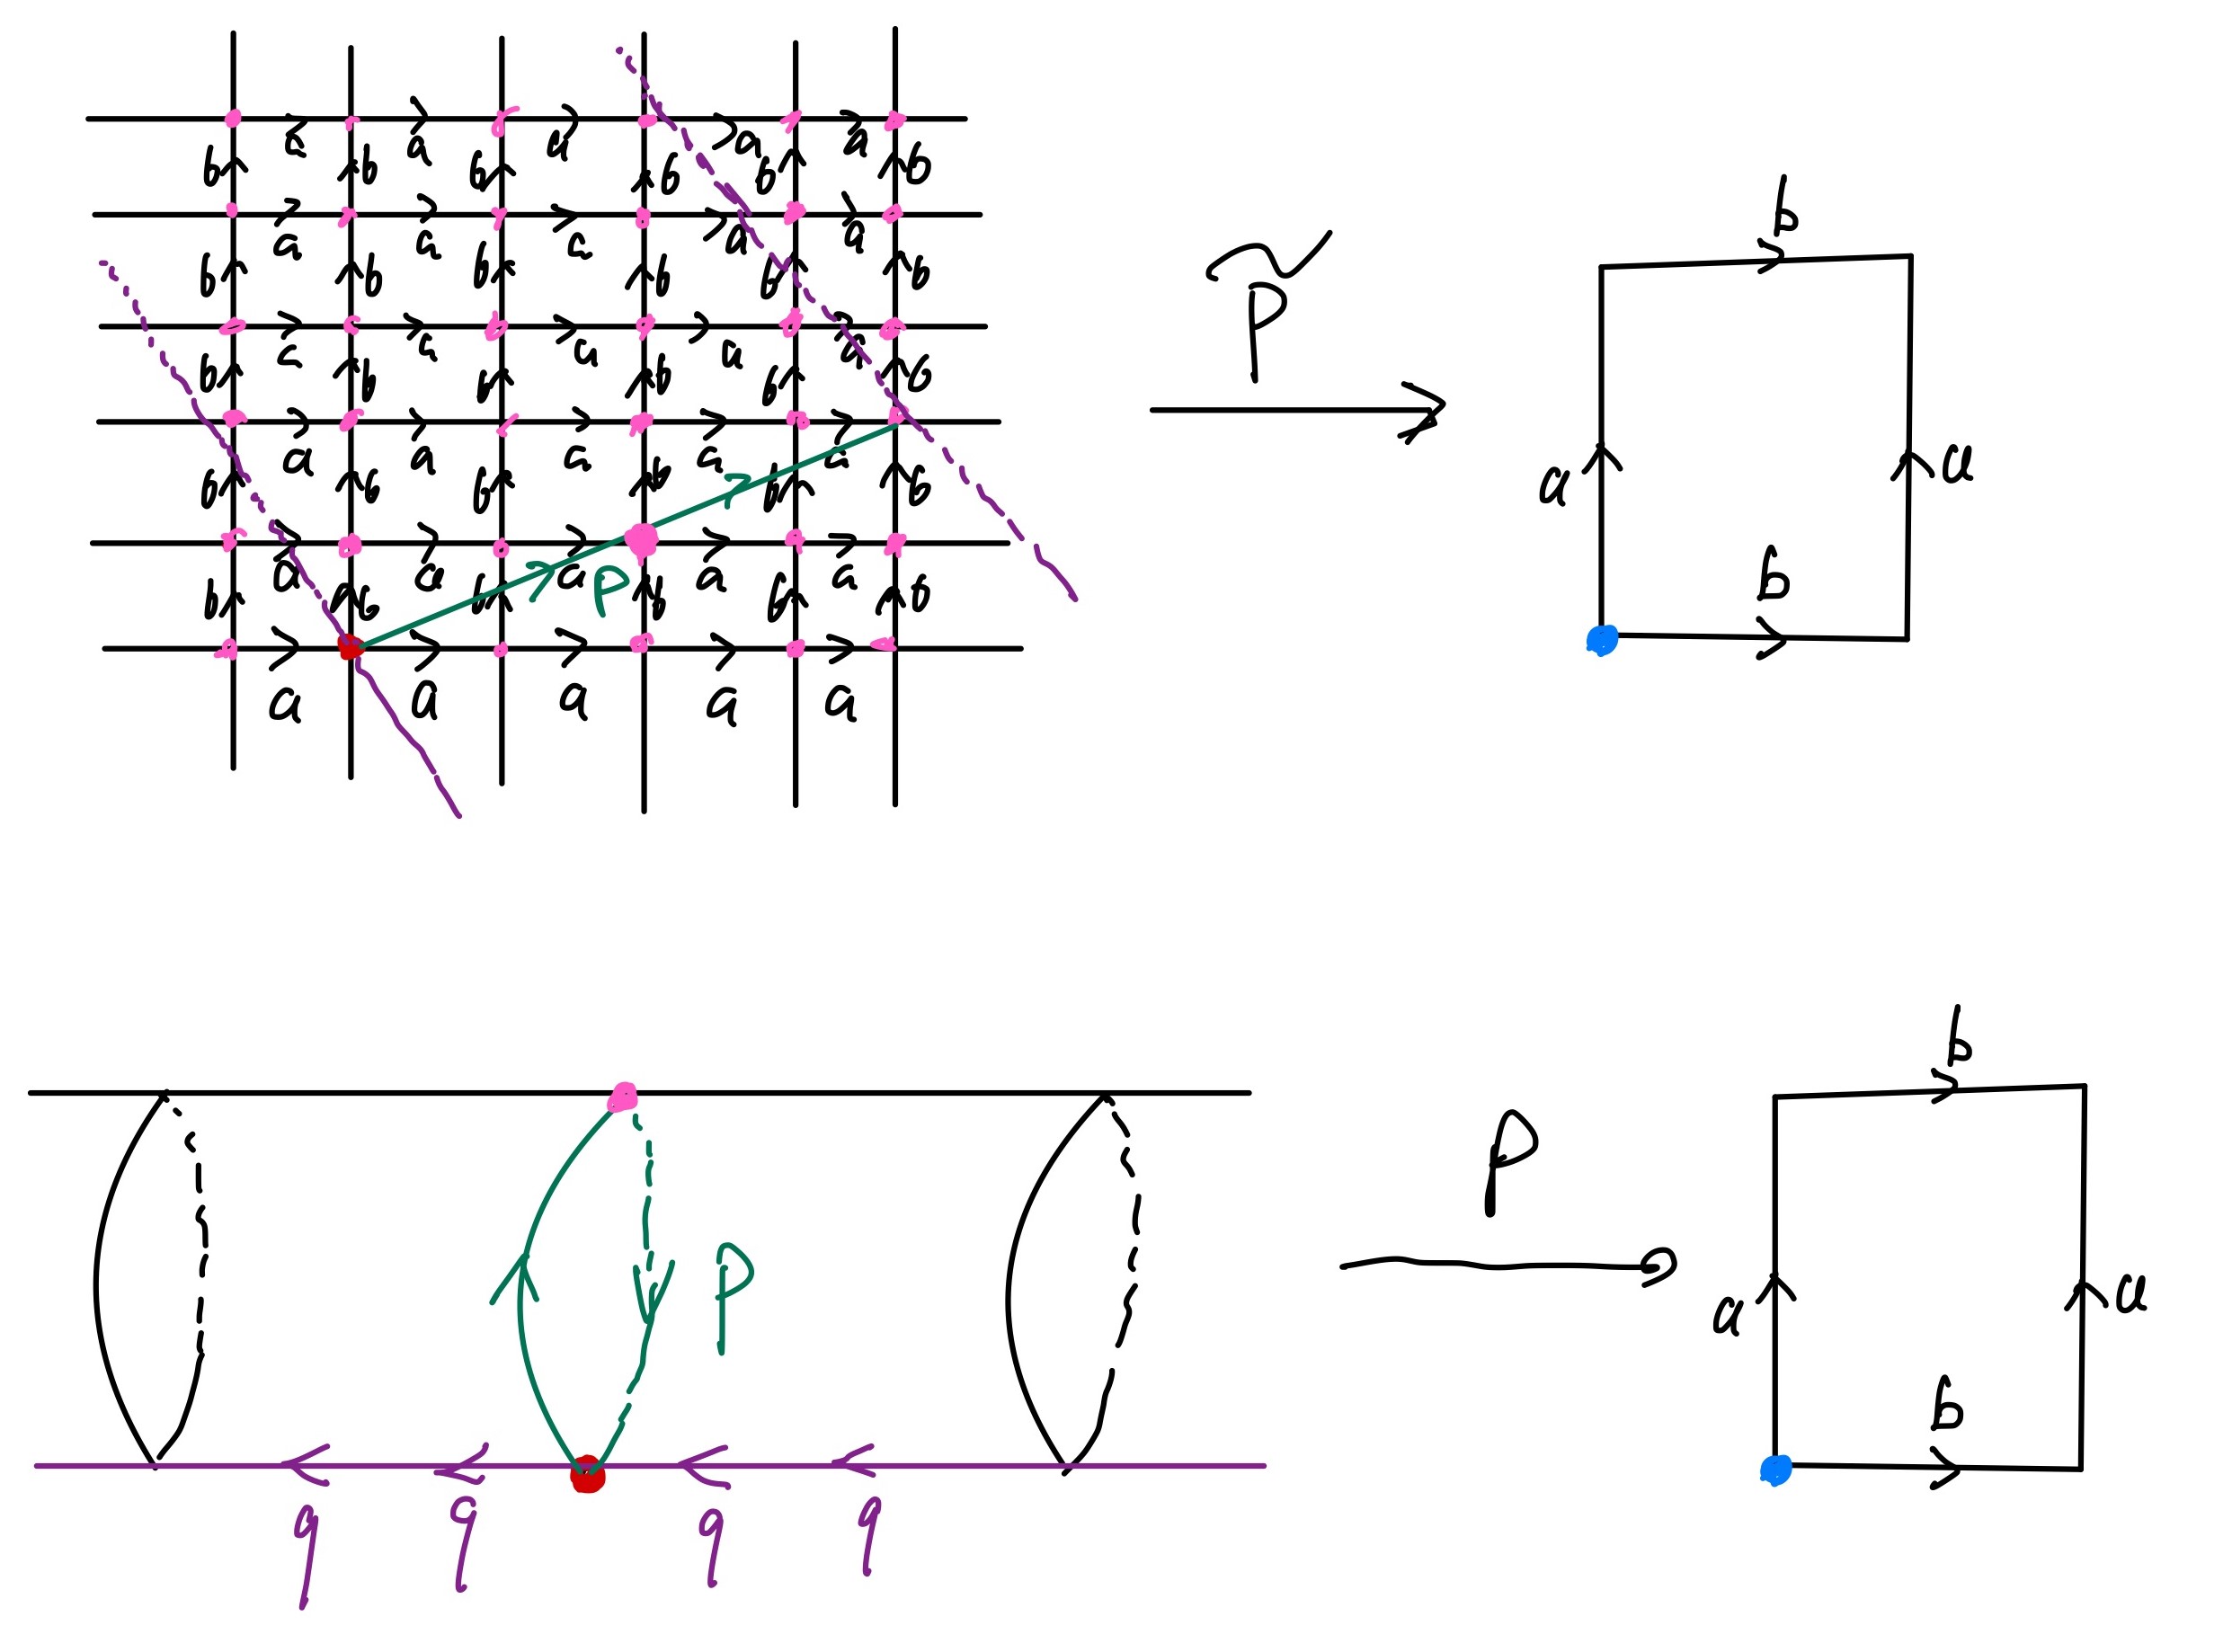 a a a a a
b b b b b b
a a a a a
b b b b b b
a a a a a
b b b b b b
a a a a a
b b b b b b
a a a P a a
b b b b b b
a a a a a
P̃
b
a a
b
P
q q q q
P
b
a a
b